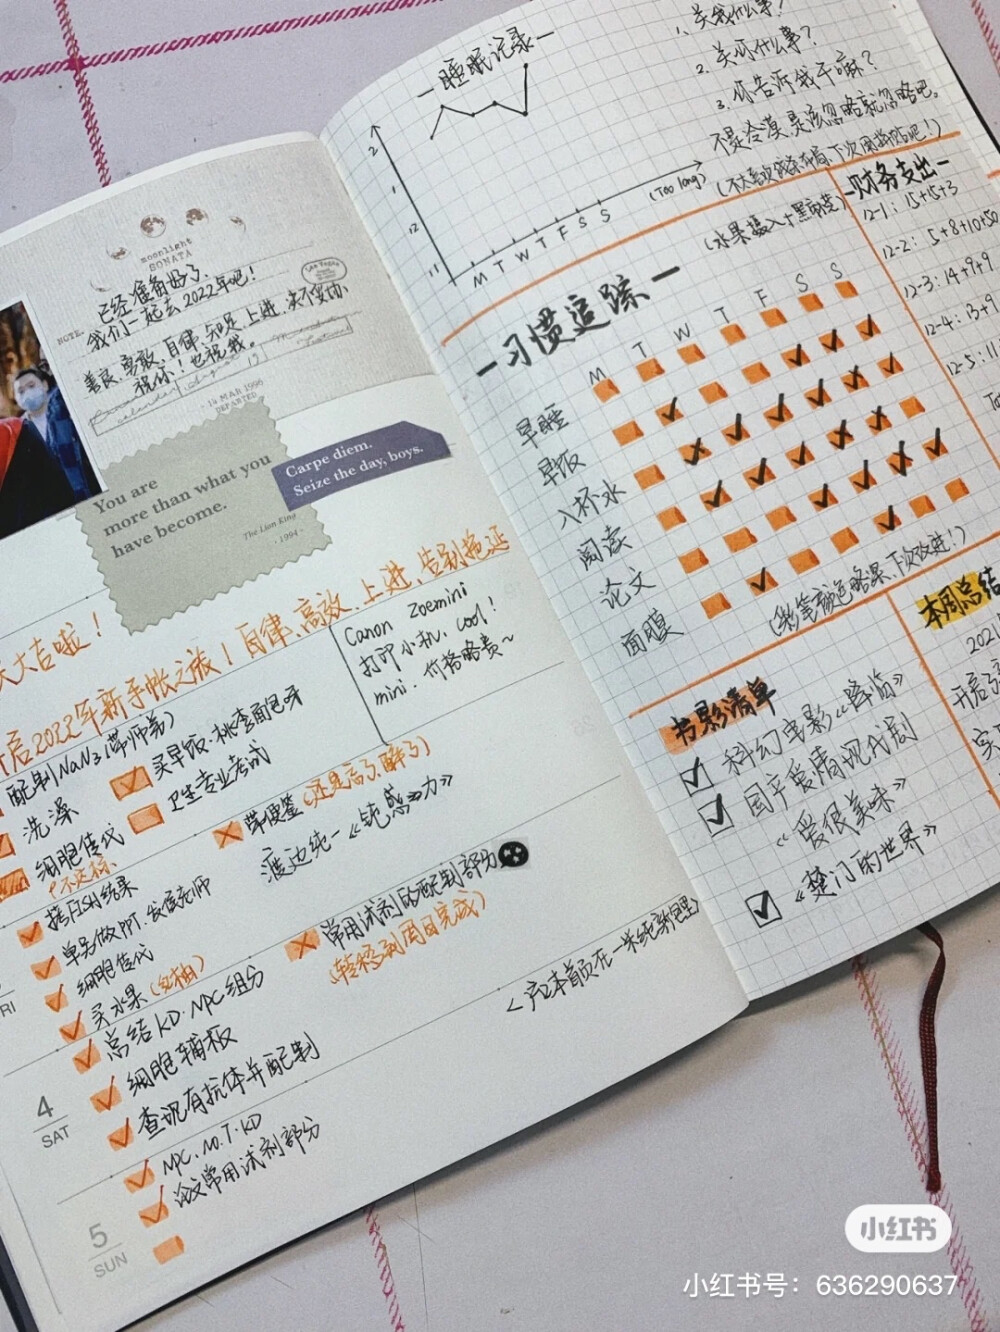 moonlight
SONATA
NOTE
已经准备好了，
我们一起去2022年吧！
善良、勇敢、自律、知足、上进、永不妥协
祝你！也祝我。
14 MAR 1996
DEPARTED
You are
more than what you
have become.
The Lion King
- 1994 -
Carpe diem.
Seize the day, boys.
天大吉啦！
启2022年新手帐之旅！自律、高效、上进、告别拖延
Canon Zoemini
打印小机，cool！
mini，价格略贵~
配制NaN3（带师弟）
买早饭：桃李面包牙
洗澡
卫生专业考试
细胞传代
（不达标
带便签（还是忘了，醉了）
渡边纯一《钝感力》
拷FISH结果
单号做PPT，发崔老师
细胞传代
常用试剂的配制部分
（转移到周日完成）
买水果（红柚）
总结KD、NPC组分
细胞铺板
查现有抗体并配制
RI
4
SAT
NPC、NO.T、KD
论文常用试剂部分
5
SUN
<这本首页在一米纯新包里>
-睡眠记录-
2
1
12
11
M T W T F S S
(Too long)
1. 关我什么事？
2. 关你什么事？
3. 你告诉我干嘛？
不是冷漠，是该忽略就忽略吧。
-习惯追踪-
M T W T F S S
早睡
早饭
八杯水
阅读
论文
面膜
（彩笔颜色略深，下次改进！）
-财务支出-
12-1：15+15+3
12-2：5+8+10+50
12-3：14+9+9
12-4：13+9
12-5：11
书影清单
科幻电影《降临》
国产爱情现代剧
《爱很美味》
《楚门的世界》
本周总结
2021
小红书
小红书号：636290637